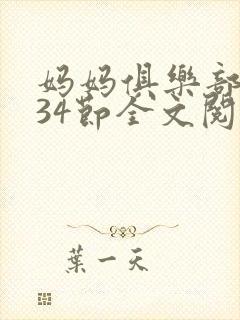 妈妈俱樂部
34節全文閱
葉一天